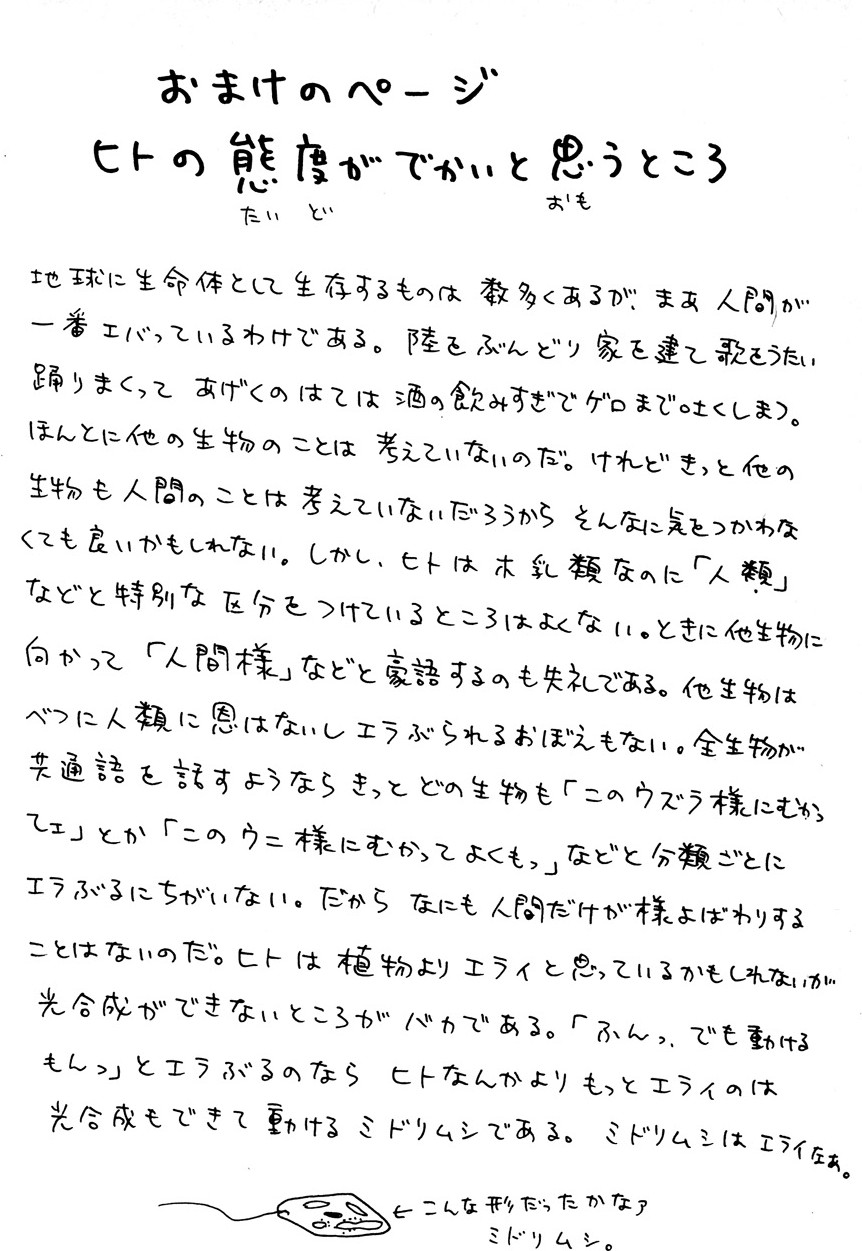 おまけのページ
ヒトの態度がでかいと思うところ
たいど おも
地球に生命体として生存するものは数多くあるが、まあ人間が
一番エバっているわけである。陸をぶんどり家を建て歌をうたい
踊りまくってあげくのはては酒の飲みすぎでゲロまで吐くしまつ。
ほんとに他の生物のことは考えていないのだ。けれどきっと他の
生物も人間のことは考えていないだろうからそんなに気をつかわな
くても良いかもしれない。しかし、ヒトはホ乳類なのに「人類」
などと特別な区分をつけているところはよくない。ときに他生物に
向かって「人間様」などと豪語するのも失礼である。他生物は
べつに人類に恩はないしエラぶられるおぼえもない。全生物が
共通語を話すようならきっとどの生物も「このウズラ様にむかっ
てェ」とか「このウニ様にむかってよくもっ」などと分類ごとに
エラぶるにちがいない。だからなにも人間だけが様よばわりする
ことはないのだ。ヒトは植物よりエライと思っているかもしれないが
光合成ができないところがバカである。「ふんっ、でも動ける
もんっ」とエラぶるのならヒトなんかよりもっとエライのは
光合成もできて動けるミドリムシである。ミドリムシはエライなあ。
←こんな形だったかなァ
ミドリムシ。